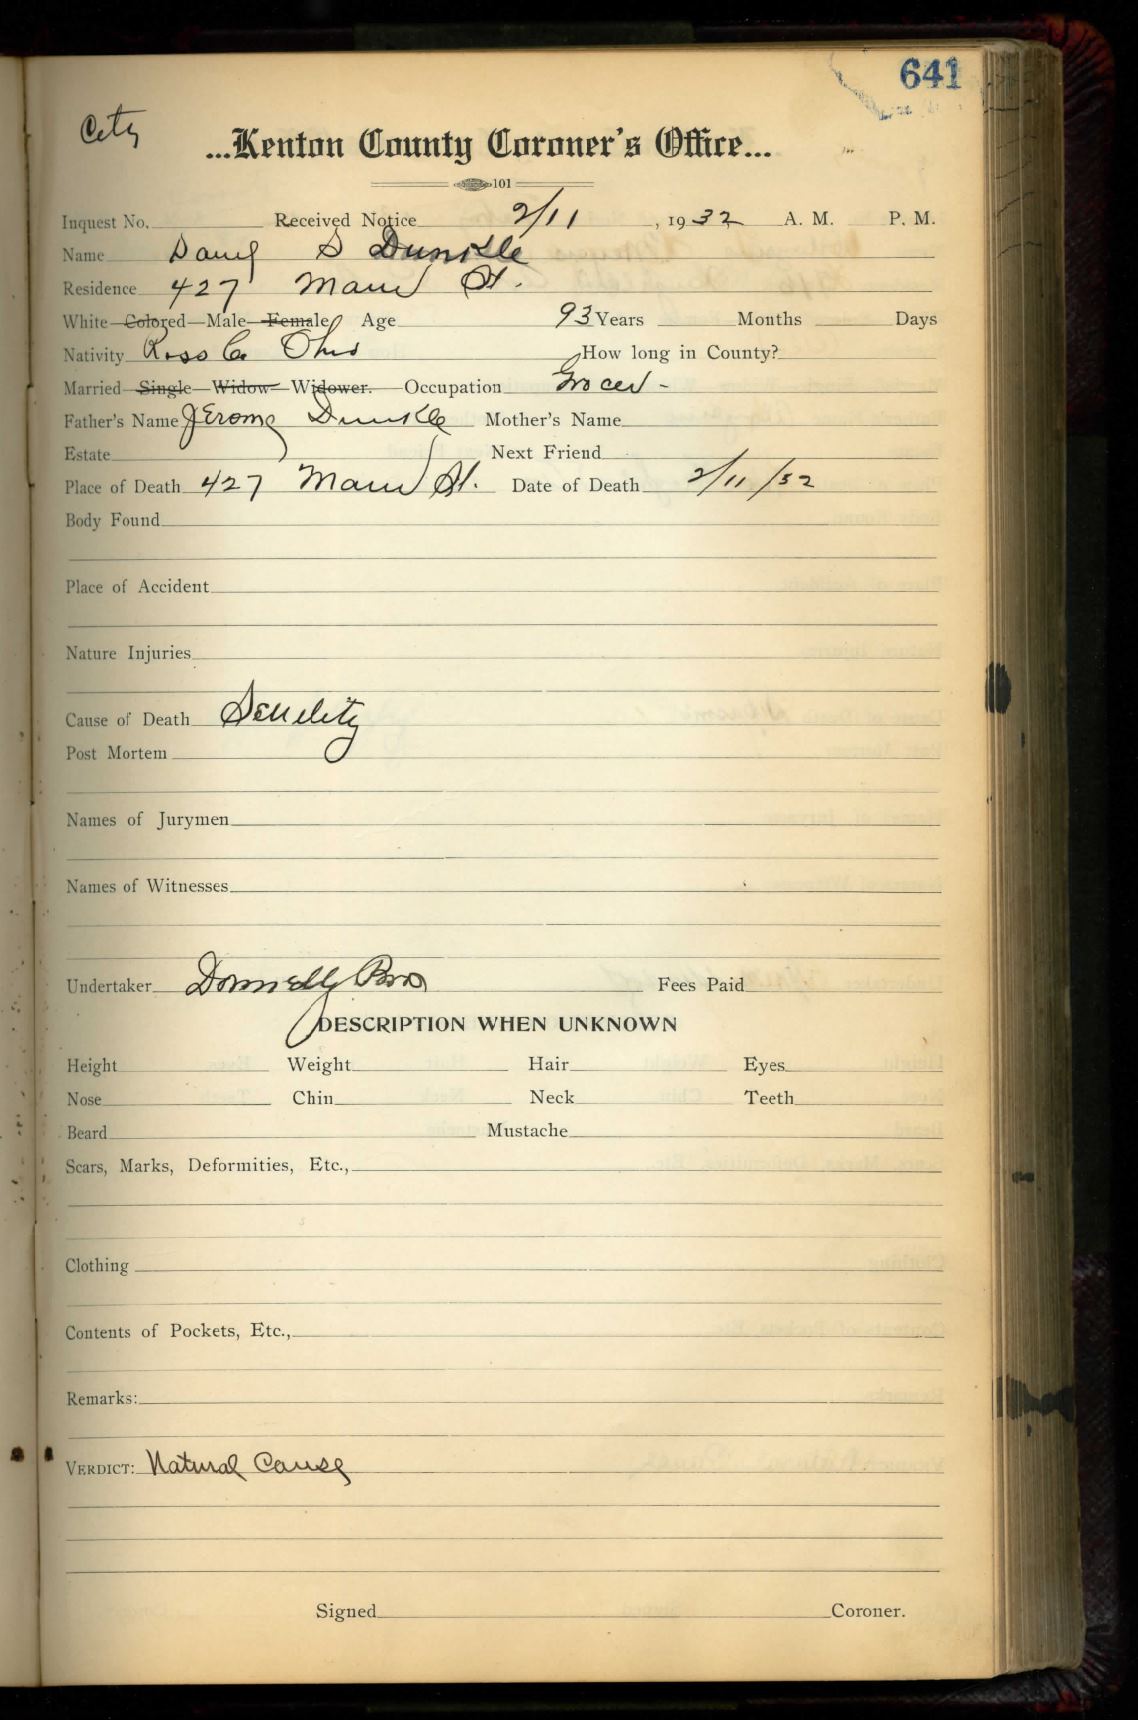 641
City
...Kenton County Coroner's Office...
101
Inquest No. Received Notice 2/11, 1932 A. M. P. M.
Name S Dunkle
Residence 427 Main St.
White Colored Male Female Age 93 Years Months Days
Nativity Ross Co Ohio How long in County?
Married Single Widow Widower. Occupation Grocer -
Father's Name Jerome Dunkle Mother's Name
Estate Next Friend
Place of Death 427 Main St. Date of Death 2/11/32
Body Found
Place of Accident
Nature Injuries
Cause of Death Senility
Post Mortem
Names of Jurymen
Names of Witnesses
Undertaker Donnelly Bros Fees Paid
DESCRIPTION WHEN UNKNOWN
Height Weight Hair Eyes
Nose Chin Neck Teeth
Beard Mustache
Scars, Marks, Deformities, Etc.,
Clothing
Contents of Pockets, Etc.,
Remarks:
VERDICT: Natural Cause
Signed Coroner.